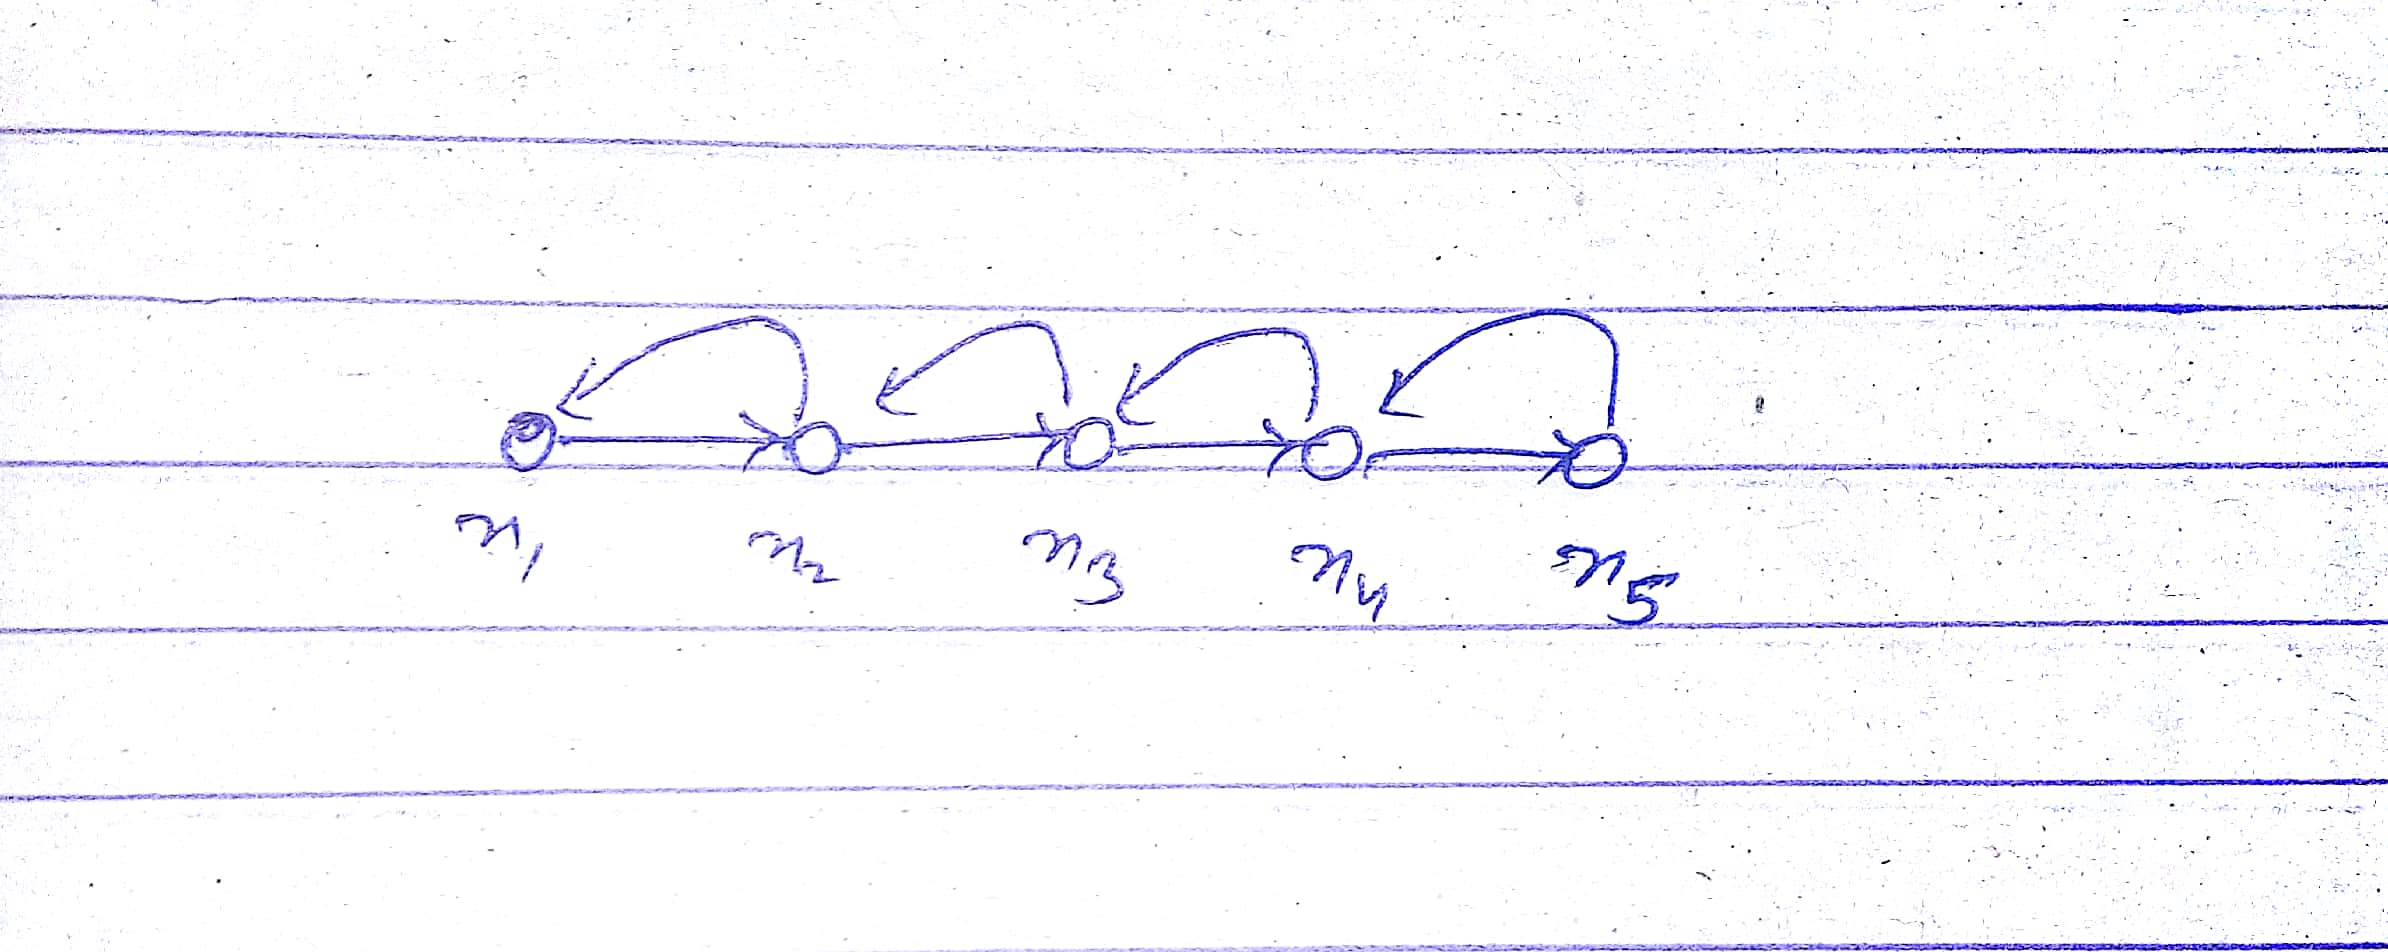 n₁ n₂ n₃ n₄ n₅